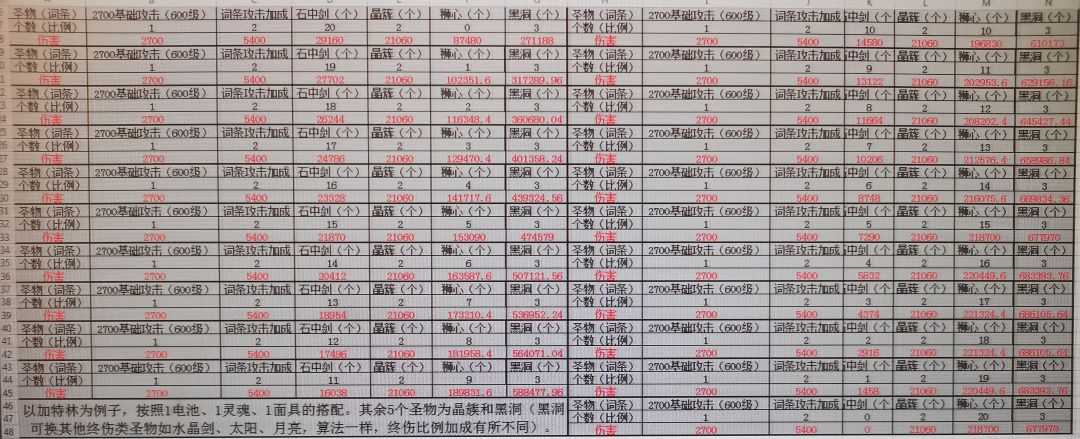 圣物（词条） 2700基础攻击（600级） 词条攻击加成 石中剑（个） 晶簇（个） 狮心（个） 黑洞（个） 圣物（词条） 2700基础攻击（600级） 词条攻击加成 中剑（个 晶簇（个） 狮心（个） 黑洞（个）
个数（比例） 1 2 20 2 0 3 个数（比例） 1 2 10 2 10 3
伤害 2700 5400 29160 21060 87480 271188 伤害 2700 5400 14580 21060 196830 610173
圣物（词条） 2700基础攻击（600级） 词条攻击加成 石中剑（个） 晶簇（个） 狮心（个） 黑洞（个） 圣物（词条） 2700基础攻击（600级） 词条攻击加成 中剑（个 晶簇（个） 狮心（个） 黑洞（个）
个数（比例） 1 2 19 2 1 3 个数（比例） 1 2 9 2 11 3
伤害 2700 5400 27702 21060 102351.6 317289.96 伤害 2700 5400 13122 21060 202953.6 629156.16
圣物（词条） 2700基础攻击（600级） 词条攻击加成 石中剑（个） 晶簇（个） 狮心（个） 黑洞（个） 圣物（词条） 2700基础攻击（600级） 词条攻击加成 中剑（个 晶簇（个） 狮心（个） 黑洞（个）
个数（比例） 1 2 18 2 2 3 个数（比例） 1 2 8 2 12 3
伤害 2700 5400 26244 21060 116348.4 360680.04 伤害 2700 5400 11664 21060 208202.4 645427.44
圣物（词条） 2700基础攻击（600级） 词条攻击加成 石中剑（个） 晶簇（个） 狮心（个） 黑洞（个） 圣物（词条） 2700基础攻击（600级） 词条攻击加成 中剑（个 晶簇（个） 狮心（个） 黑洞（个）
个数（比例） 1 2 17 2 3 3 个数（比例） 1 2 7 2 13 3
伤害 2700 5400 24786 21060 129470.4 401358.24 伤害 2700 5400 10206 21060 212576.4 658986.84
28 圣物（词条） 2700基础攻击（600级） 词条攻击加成 石中剑（个） 晶簇（个） 狮心（个） 黑洞（个） 圣物（词条） 2700基础攻击（600级） 词条攻击加成 中剑（个 晶簇（个） 狮心（个） 黑洞（个）
29 个数（比例） 1 2 16 2 4 3 个数（比例） 1 2 6 2 14 3
30 伤害 2700 5400 23328 21060 141717.6 439324.56 伤害 2700 5400 8748 21060 216075.6 669834.36
31 圣物（词条） 2700基础攻击（600级） 词条攻击加成 石中剑（个） 晶簇（个） 狮心（个） 黑洞（个） 圣物（词条） 2700基础攻击（600级） 词条攻击加成 中剑（个 晶簇（个） 狮心（个） 黑洞（个）
32 个数（比例） 1 2 15 2 5 3 个数（比例） 1 2 5 2 15 3
33 伤害 2700 5400 21870 21060 153090 474579 伤害 2700 5400 7290 21060 218700 677970
34 圣物（词条） 2700基础攻击（600级） 词条攻击加成 石中剑（个） 晶簇（个） 狮心（个） 黑洞（个） 圣物（词条） 2700基础攻击（600级） 词条攻击加成 中剑（个 晶簇（个） 狮心（个） 黑洞（个）
35 个数（比例） 1 2 14 2 6 3 个数（比例） 1 2 4 2 16 3
36 伤害 2700 5400 20412 21060 163587.6 507121.56 伤害 2700 5400 5832 21060 220449.6 683393.76
37 圣物（词条） 2700基础攻击（600级） 词条攻击加成 石中剑（个） 晶簇（个） 狮心（个） 黑洞（个） 圣物（词条） 2700基础攻击（600级） 词条攻击加成 中剑（个 晶簇（个） 狮心（个） 黑洞（个）
38 个数（比例） 1 2 13 2 7 3 个数（比例） 1 2 3 2 17 3
39 伤害 2700 5400 18954 21060 173210.4 536952.24 伤害 2700 5400 4374 21060 221324.4 686105.64
40 圣物（词条） 2700基础攻击（600级） 词条攻击加成 石中剑（个） 晶簇（个） 狮心（个） 黑洞（个） 圣物（词条） 2700基础攻击（600级） 词条攻击加成 中剑（个 晶簇（个） 狮心（个） 黑洞（个）
41 个数（比例） 1 2 12 2 8 3 个数（比例） 1 2 2 2 18 3
42 伤害 2700 5400 17496 21060 181958.4 564071.04 伤害 2700 5400 2916 21060 221324.4 686105.64
43 圣物（词条） 2700基础攻击（600级） 词条攻击加成 石中剑（个） 晶簇（个） 狮心（个） 黑洞（个） 圣物（词条） 2700基础攻击（600级） 词条攻击加成 中剑（个 晶簇（个） 狮心（个） 黑洞（个）
44 个数（比例） 1 2 11 2 9 3 个数（比例） 1 2 1 2 19 3
45 伤害 2700 5400 16038 21060 189831.6 588477.96 伤害 2700 5400 1458 21060 220449.6 683393.76
46 以加特林为例子，按照1电池、1灵魂、1面具的搭配。其余5个圣物为晶簇和黑洞（黑洞 圣物（词条） 2700基础攻击（600级） 词条攻击加成 中剑（个 晶簇（个） 狮心（个） 黑洞（个）
47 可换其他终伤类圣物如水晶剑、太阳、月亮，算法一样，终伤比例加成有所不同）。 个数（比例） 1 2 0 2 20 3
48 伤害 2700 5400 0 21060 218700 677970